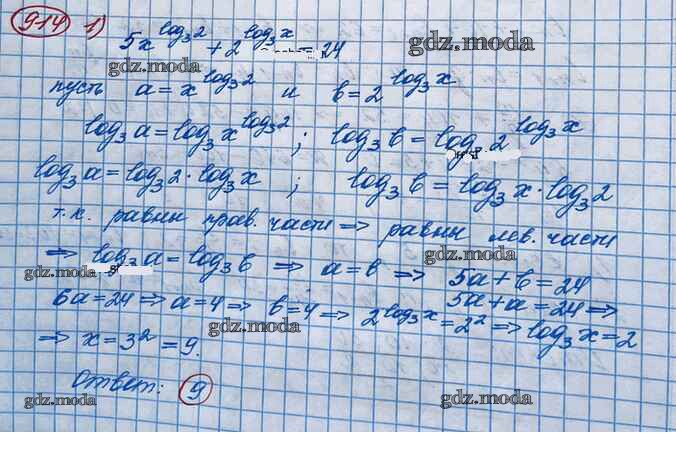 914 1)
5x^log₃2 + 2^log₃x = 24
gdz.moda
gdz.moda
пусть a = x^log₃2 и b = 2^log₃x
gdz.moda
gdz.moda
log₃a = log₃x^log₃2 ; log₃b = log₃2^log₃x
log₃a = log₃2 · log₃x ; log₃b = log₃x · log₃2
gdz.moda
gdz.moda
т.к. равны прав. части ⇒ равны лев. части
⇒ log₃a = log₃b ⇒ a = b ⇒ 5a + b = 24
gdz.moda
gdz.moda
5a + a = 24 ⇒
6a = 24 ⇒ a = 4 ⇒ b = 4 ⇒ 2^log₃x = 2² ⇒ log₃x = 2
gdz.moda
⇒ x = 3² = 9.
Ответ: 9
gdz.moda
gdz.moda